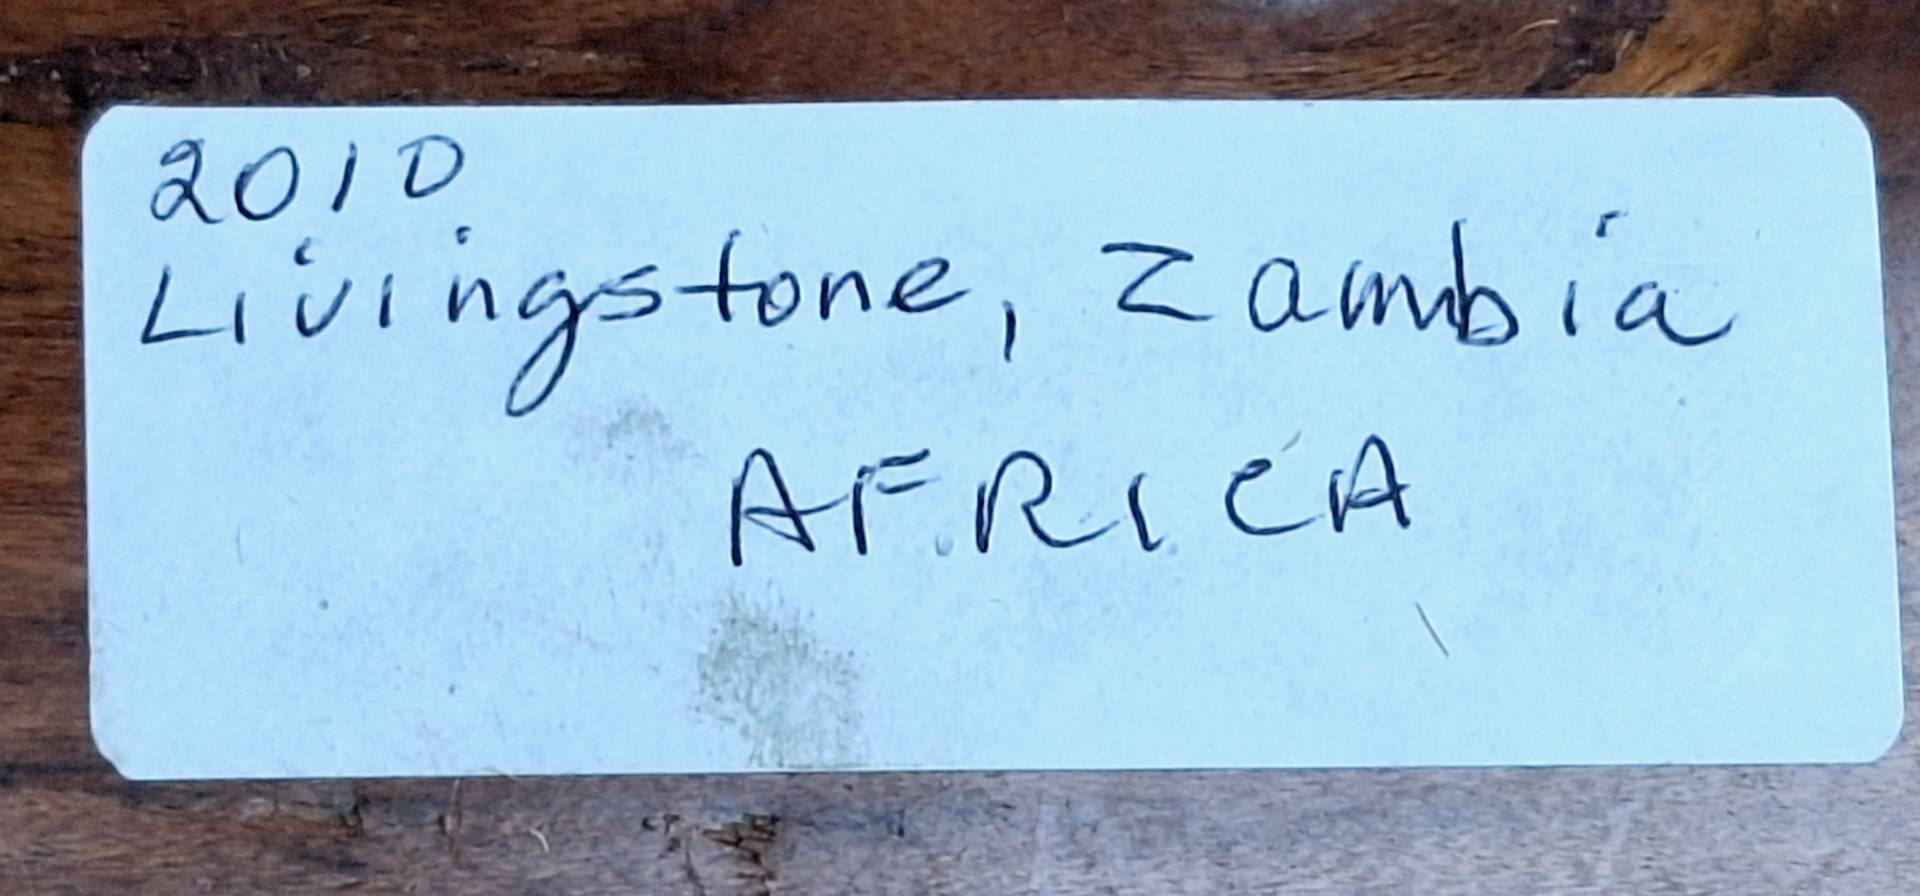 2010
Livingstone, Zambia
AFRICA